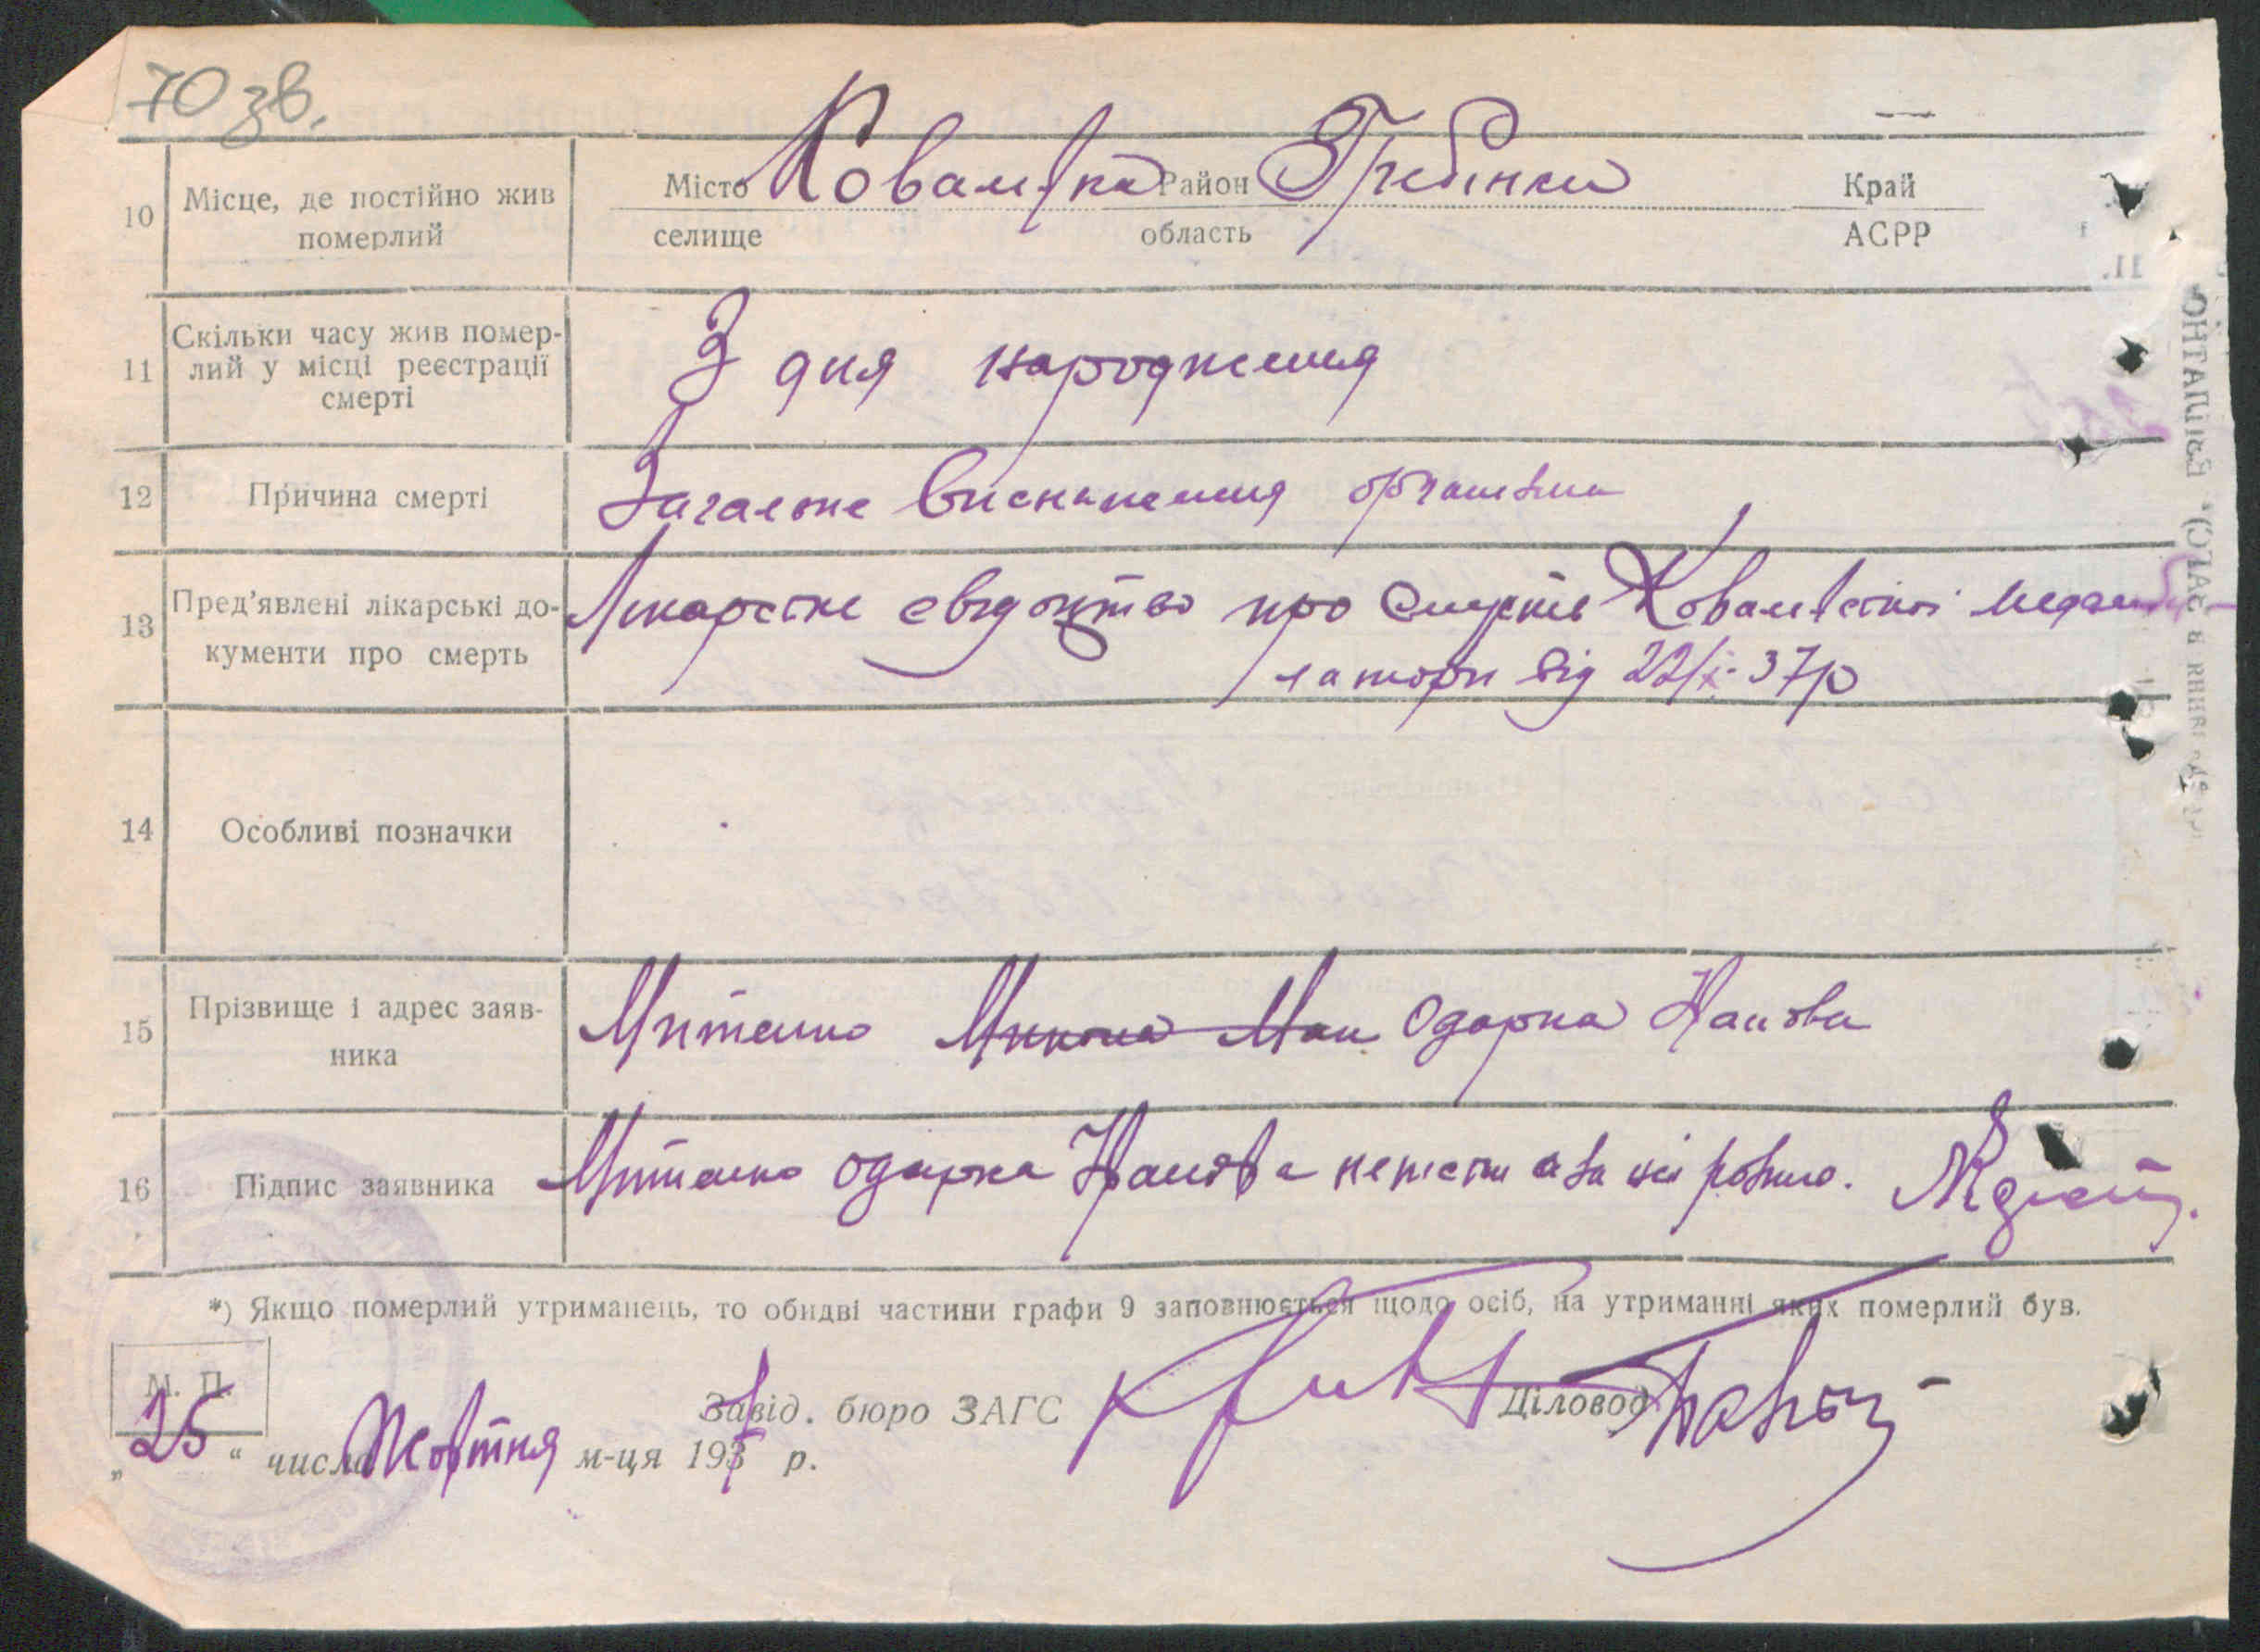 70 зв.
10 Місце, де постійно жив померлий
Місто Ковалівка Район Гребінки Край
селище область АСРР
11 Скільки часу жив помер-
лий у місці реєстрації
смерті
З дня народження
12 Причина смерті
Загальне виснаження організма
13 Пред'явлені лікарські до-
кументи про смерть
Лікарське свідоцтво про смерть Ковалівської медамбу-
латори від 22/X-37р
14 Особливі позначки
15 Прізвище і адрес заяв-
ника
Митенко Одарка
16 Підпис заявника
Митенко Одарка неписм а за неї розпис.
*) Якщо померлий утриманець, то обидві частини графи 9 заповнюється щодо осіб, на утриманні яких померлий був.
М. П.
Завід. бюро ЗАГС Діловод
„25“ числа Жовтня м-ця 1937 р.